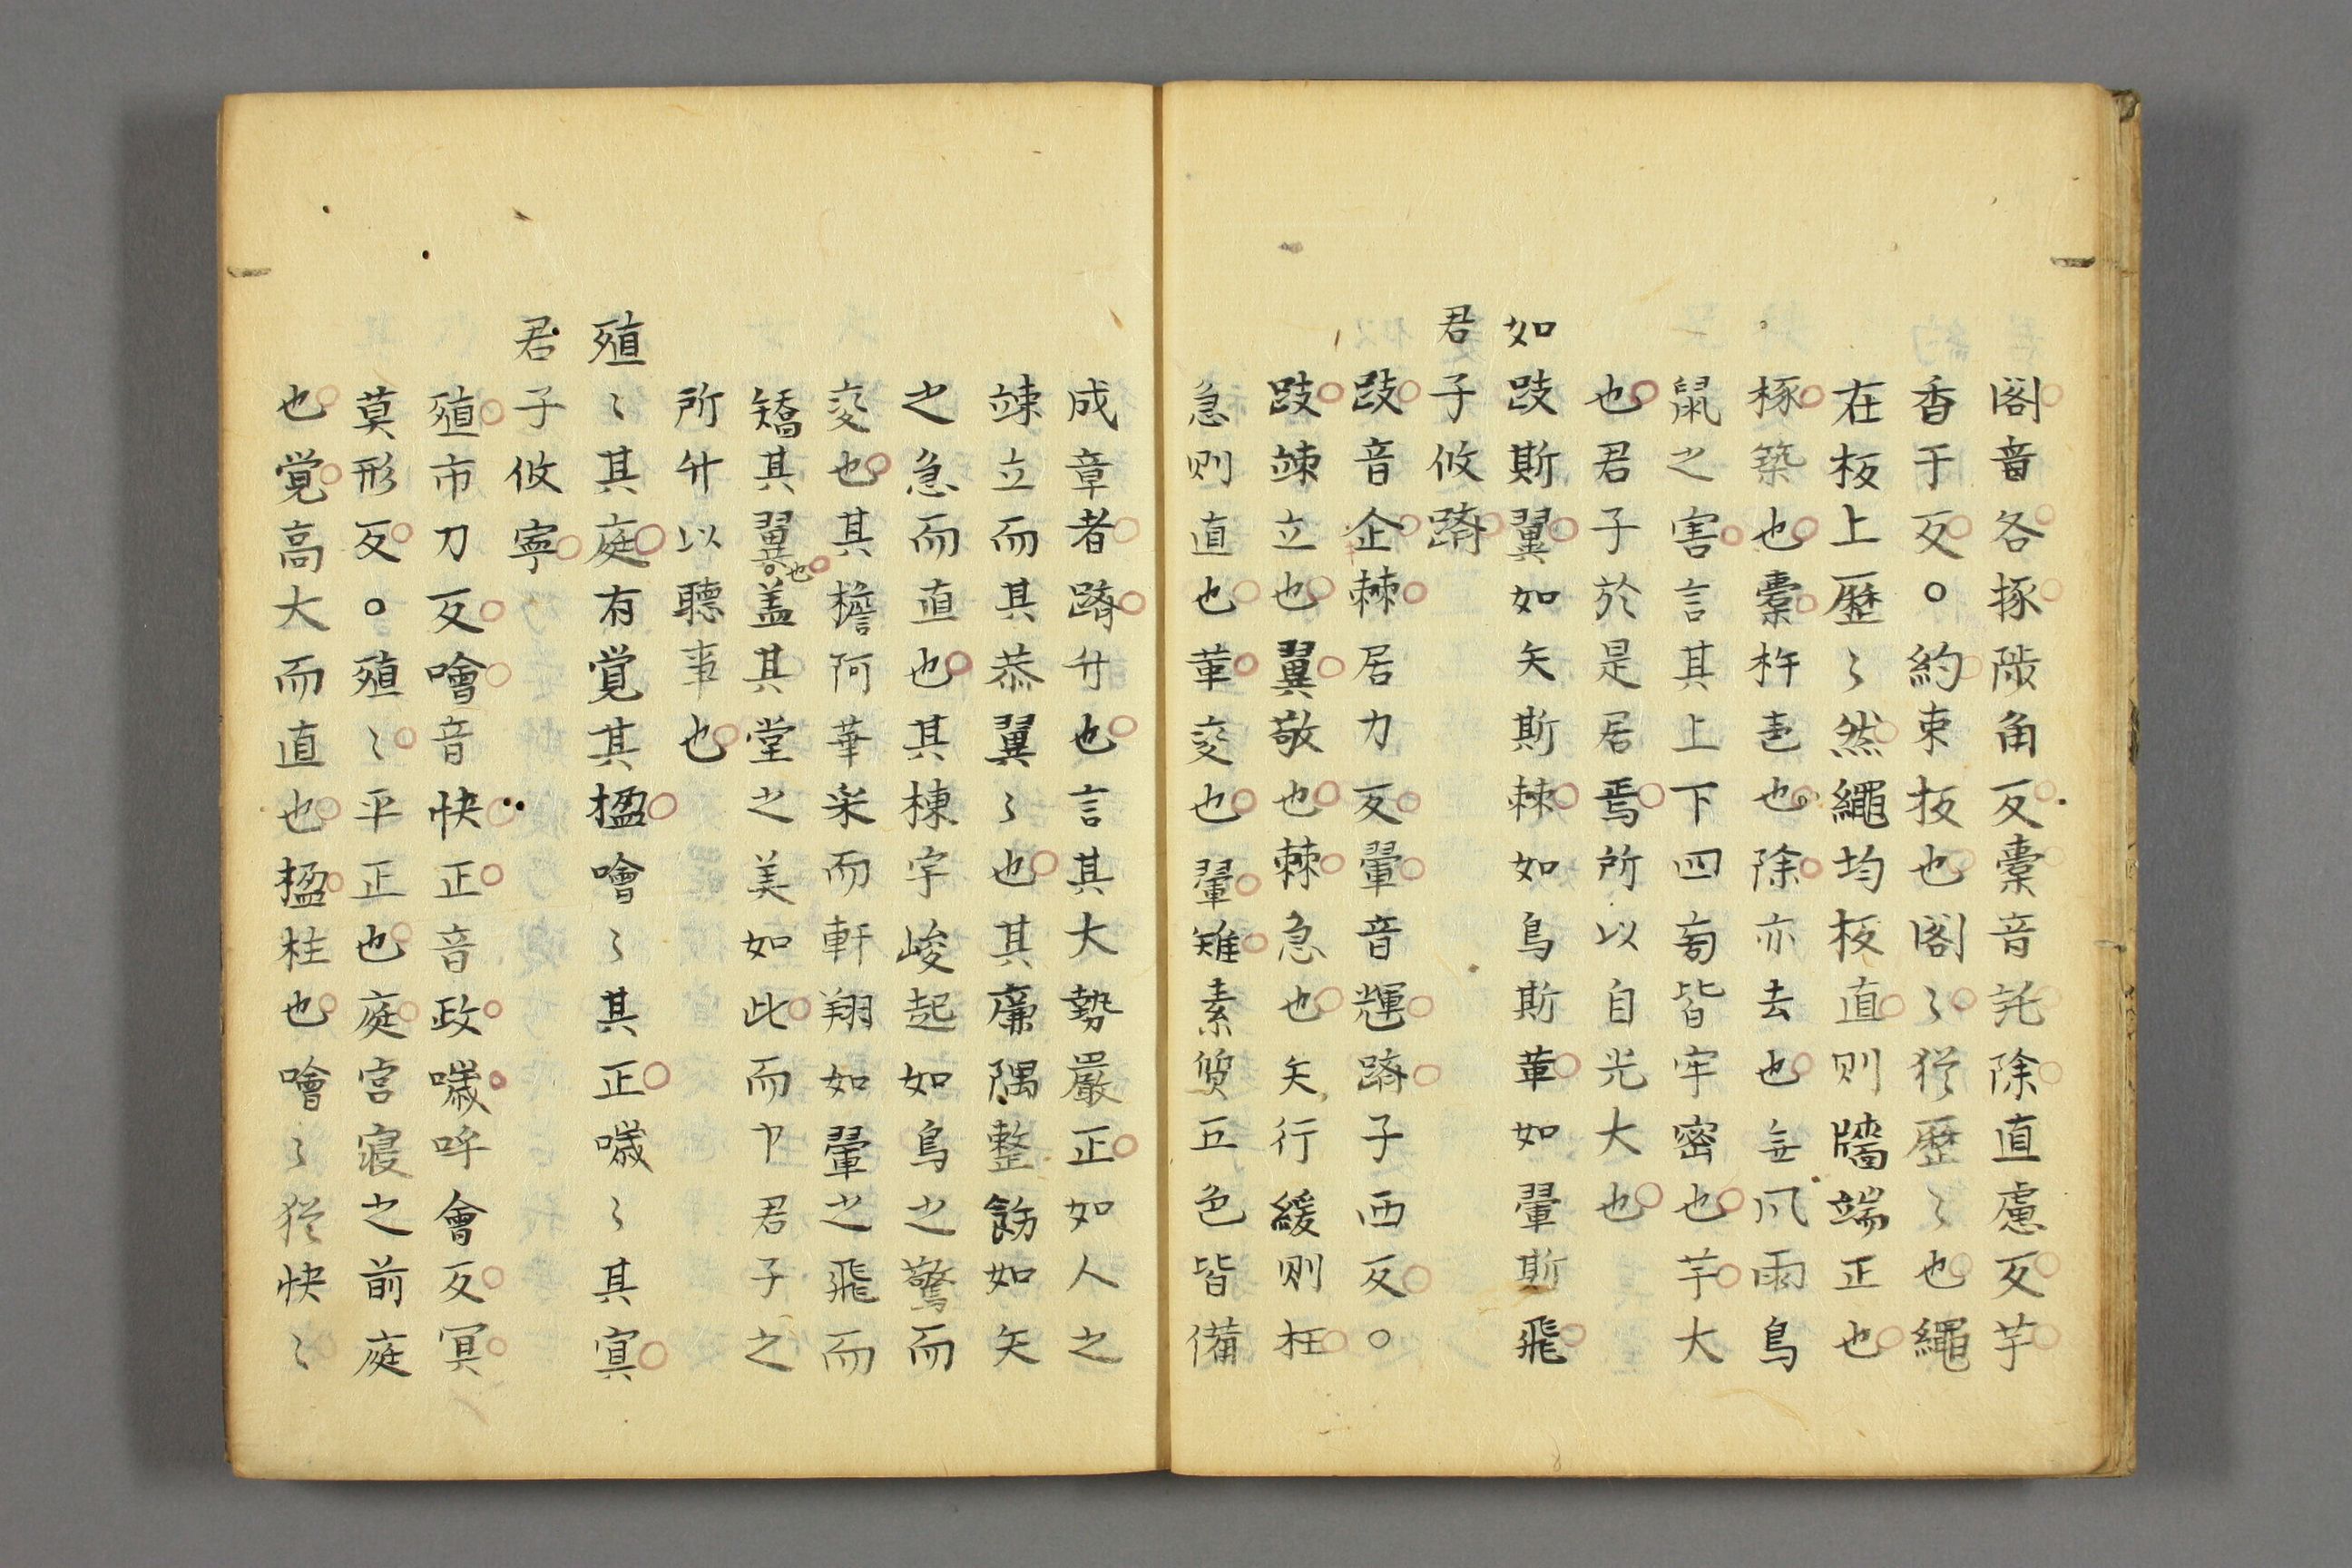 閣音各椓陟角反橐音託除直慮反芋
香于反○約束板也閣〻猶歷〻也繩
在板上歷〻然繩均板直則牆端正也
椓築也橐杵㐮也除亦去也無風雨鳥
鼠之害言其上下四旁皆牢密也芋大
也君子於是居焉所以自光大也
如跂斯翼如矢斯棘如鳥斯革如翬斯飛
君子攸躋
跂音企棘居力反翬音輝躋子西反○
跂竦立也翼敬也棘急也矢行緩則枉
急則直也革変也翬雉素質五色皆備
成章者躋升也言其大勢嚴正如人之
竦立而其恭翼〻也其廉隅整飭如矢
之急而直也其棟宇峻起如鳥之驚而
変也其檐阿華采而軒翔如翬之飛而
矯其翼也盖其堂之美如此而卩君子之
所升以聽事也
殖〻其庭有覚其楹噲〻其正噦〻其㝠
君子攸寧
殖市力反噲音快正音政噦呼會反冥
莫形反○殖〻平正也庭宮寢之前庭
也覚高大而直也楹柱也噲〻猶快〻